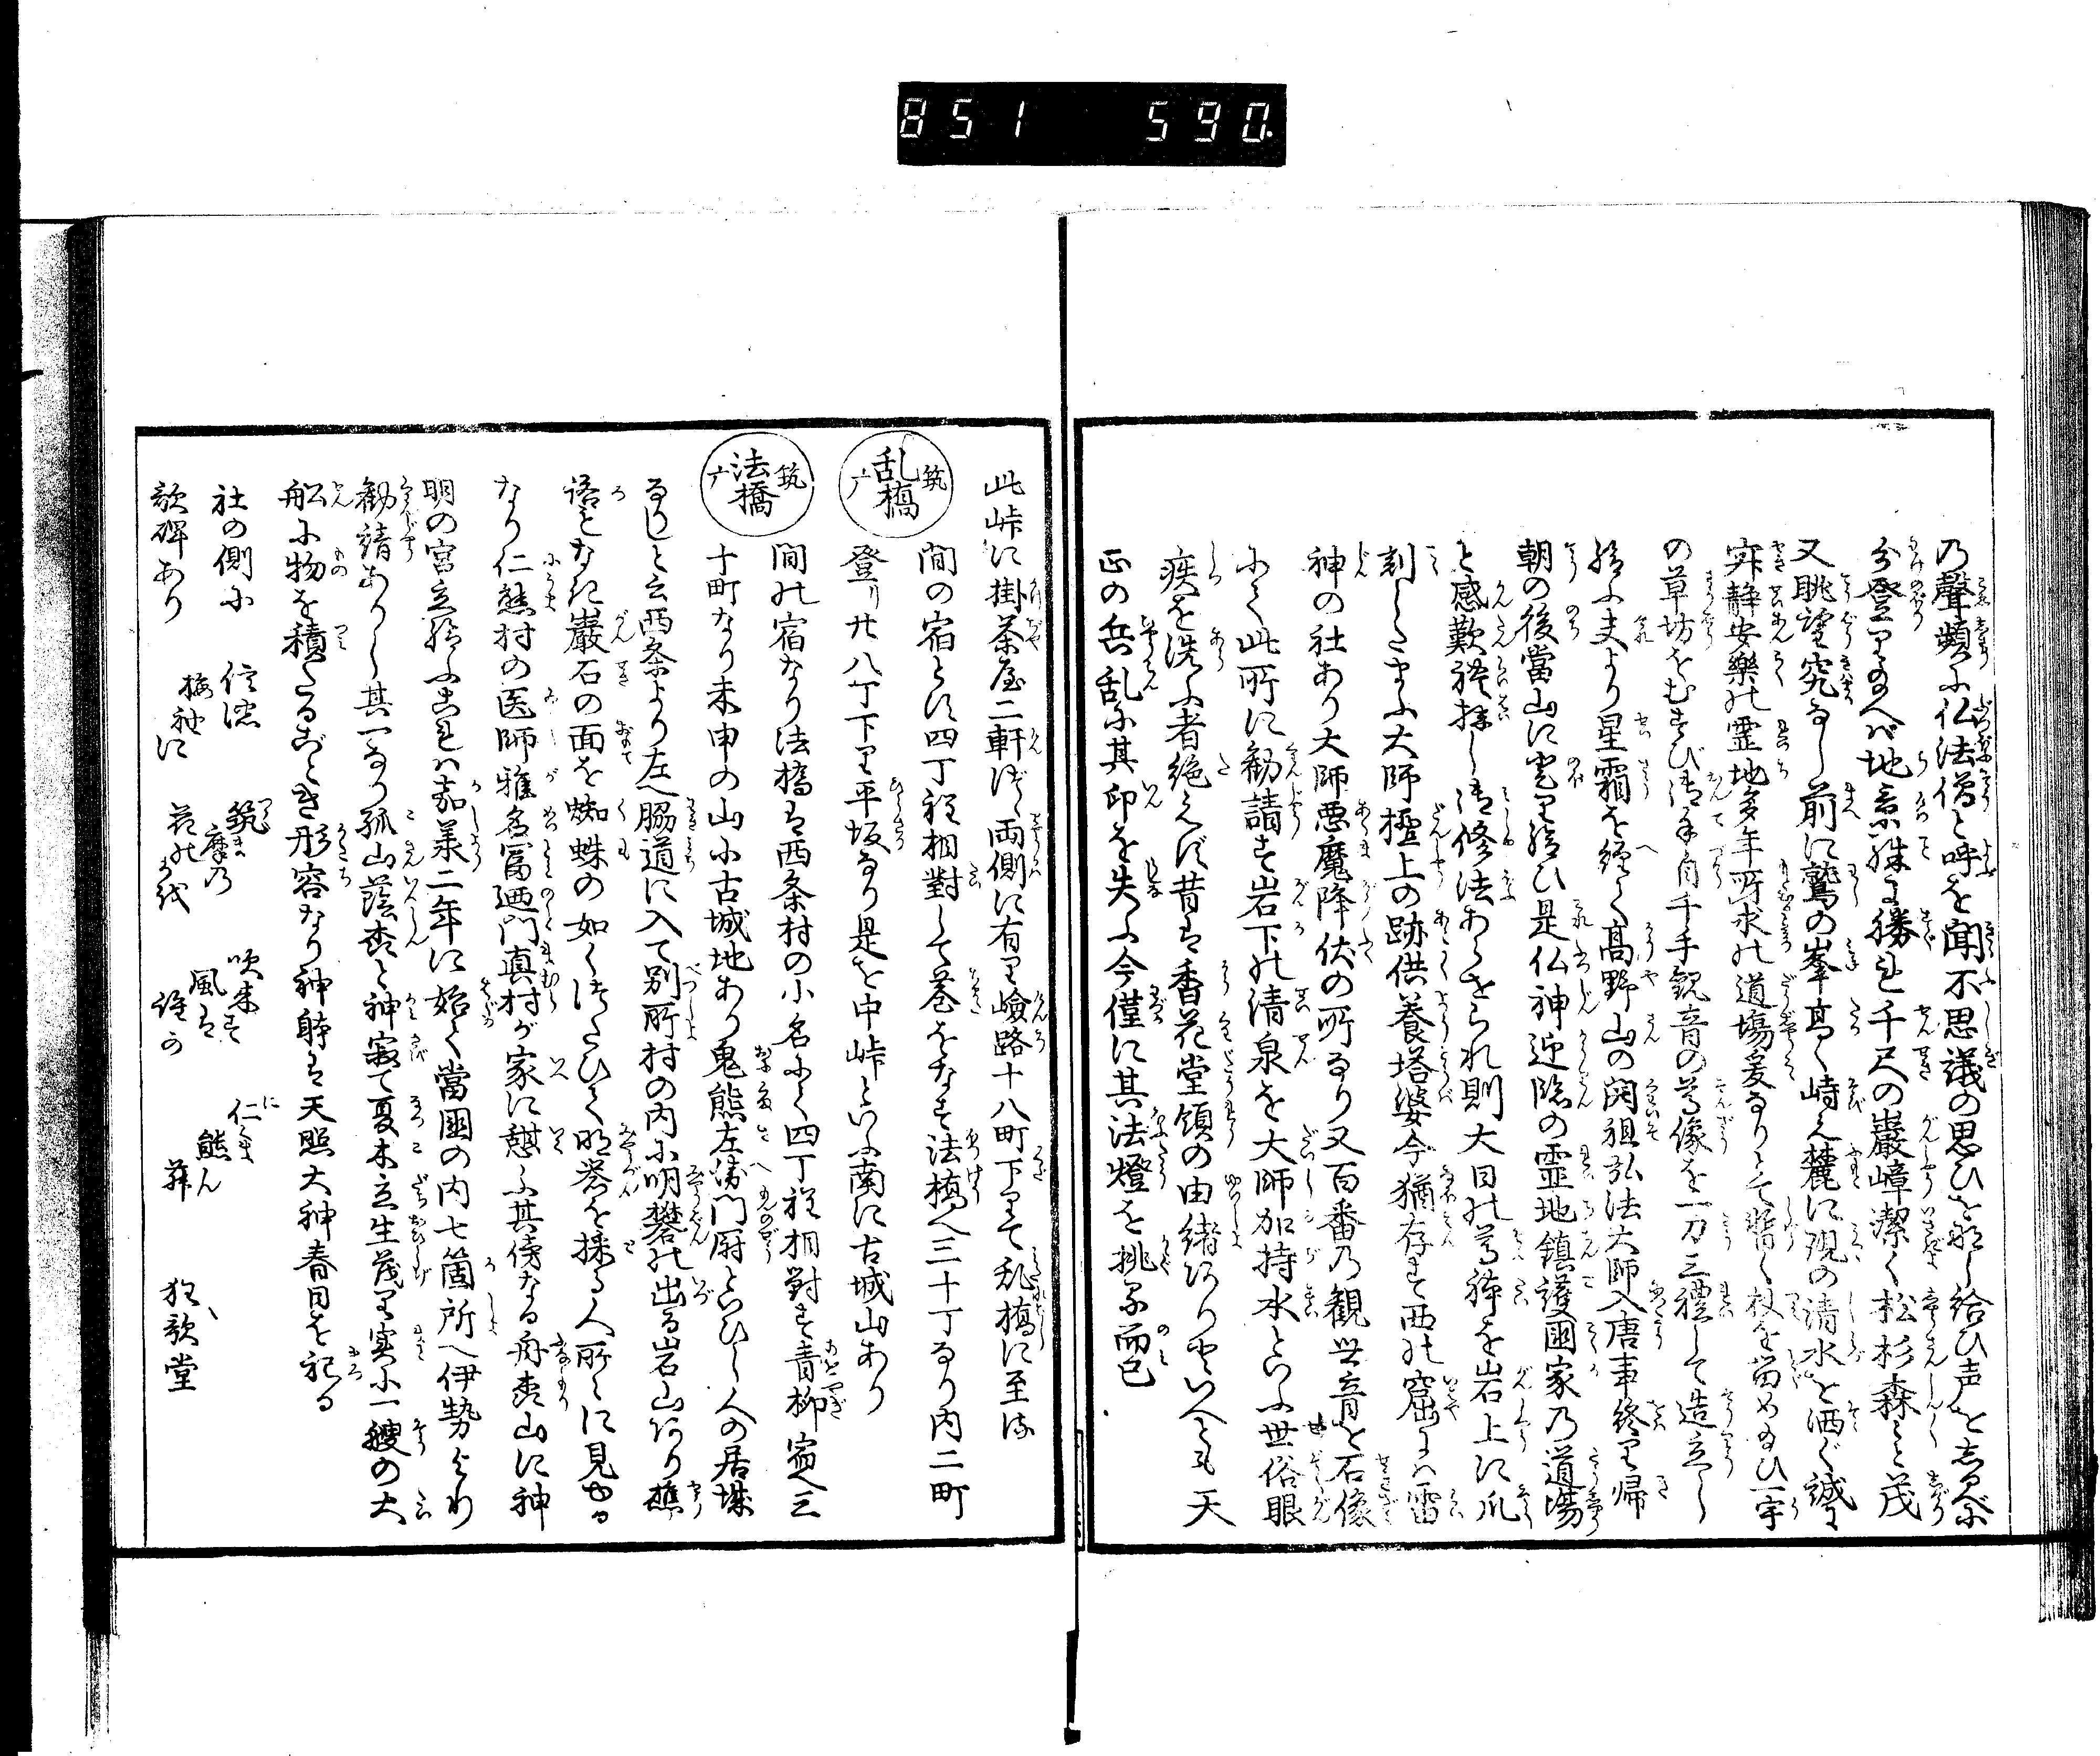 851 590
乃聲頻に仏法僧と呼を聞不思議の思ひをなし給ひ声をしるべ
分登りのへば地景殊に勝れ千尺の巖嶂潔く松杉森々と茂
又眺望究なし前に鷲の峯高く峙え麓に硯の清水を洒ぐ誠に
寂静安樂の霊地多年所求の道場爰なりとて暫く杖を留め給ひ一宇
の草坊をむすび御手自千手観音の尊像を一刀三禮して造立し
給ふ夫より星霜を經て高野山の開祖弘法大師入唐事終り帰
朝の後當山に登り給ひ是仏神迎臨の霊地鎮護國家乃道場
と感歎礼拝し御修法あらせられ則大日の尊躰を岩上に爪
刻したまふ大師檀上の跡供養塔婆今猶存す西の窟には雷
神の社あり大師悪魔降伏の所なり又百番乃観世音を石像
にて此所に勧請す岩下の清泉を大師加持水といふ世俗眼
疾を洗ふ者絶えず昔は香花堂領の由緒ありといへども天
正の兵乱に其印を失ふ今僅に其法燈を挑る而已
此峠に掛茶屋二軒づゝ両側に有り嶮路十八町下りて乱橋に至る
乱橋 筑
間の宿とに四丁程相對して巷をなす法橋へ三十丁なり内二町
登り廿八丁下り平坂なり是を中峠といふ南に古城山あり
法橋 筑
間の宿なり法橋は西条村の小名にて四丁程相對す青柳宿へ三
十町なり未申の山に古城地あり鬼熊左衛門尉といひし人の居城
なりと云西条より左へ脇道に入て別所村の内に明礬の出る岩山あり樵
路となき巖石の面を蜘蛛の如くつたひて明礬を採る人所々に見ゆる
なり仁熊村の医師雅名冨廼門真村が家に憩ふ其傍なる舟杢山に神
明の宮立給ふこれは嘉承二年に始て當國の内七箇所へ伊勢より
勧請ありし其一なり孤山蔭森と神寂て夏木立生茂り実に一艘の大
舩に物を積たるごとき形容なり神躰は天照大神春日を祀る
社の側に 信濃 筑摩乃 吹来す風は 仁熊ん
歌碑あり 梅神に 花の 誰の 舞 狂歌堂